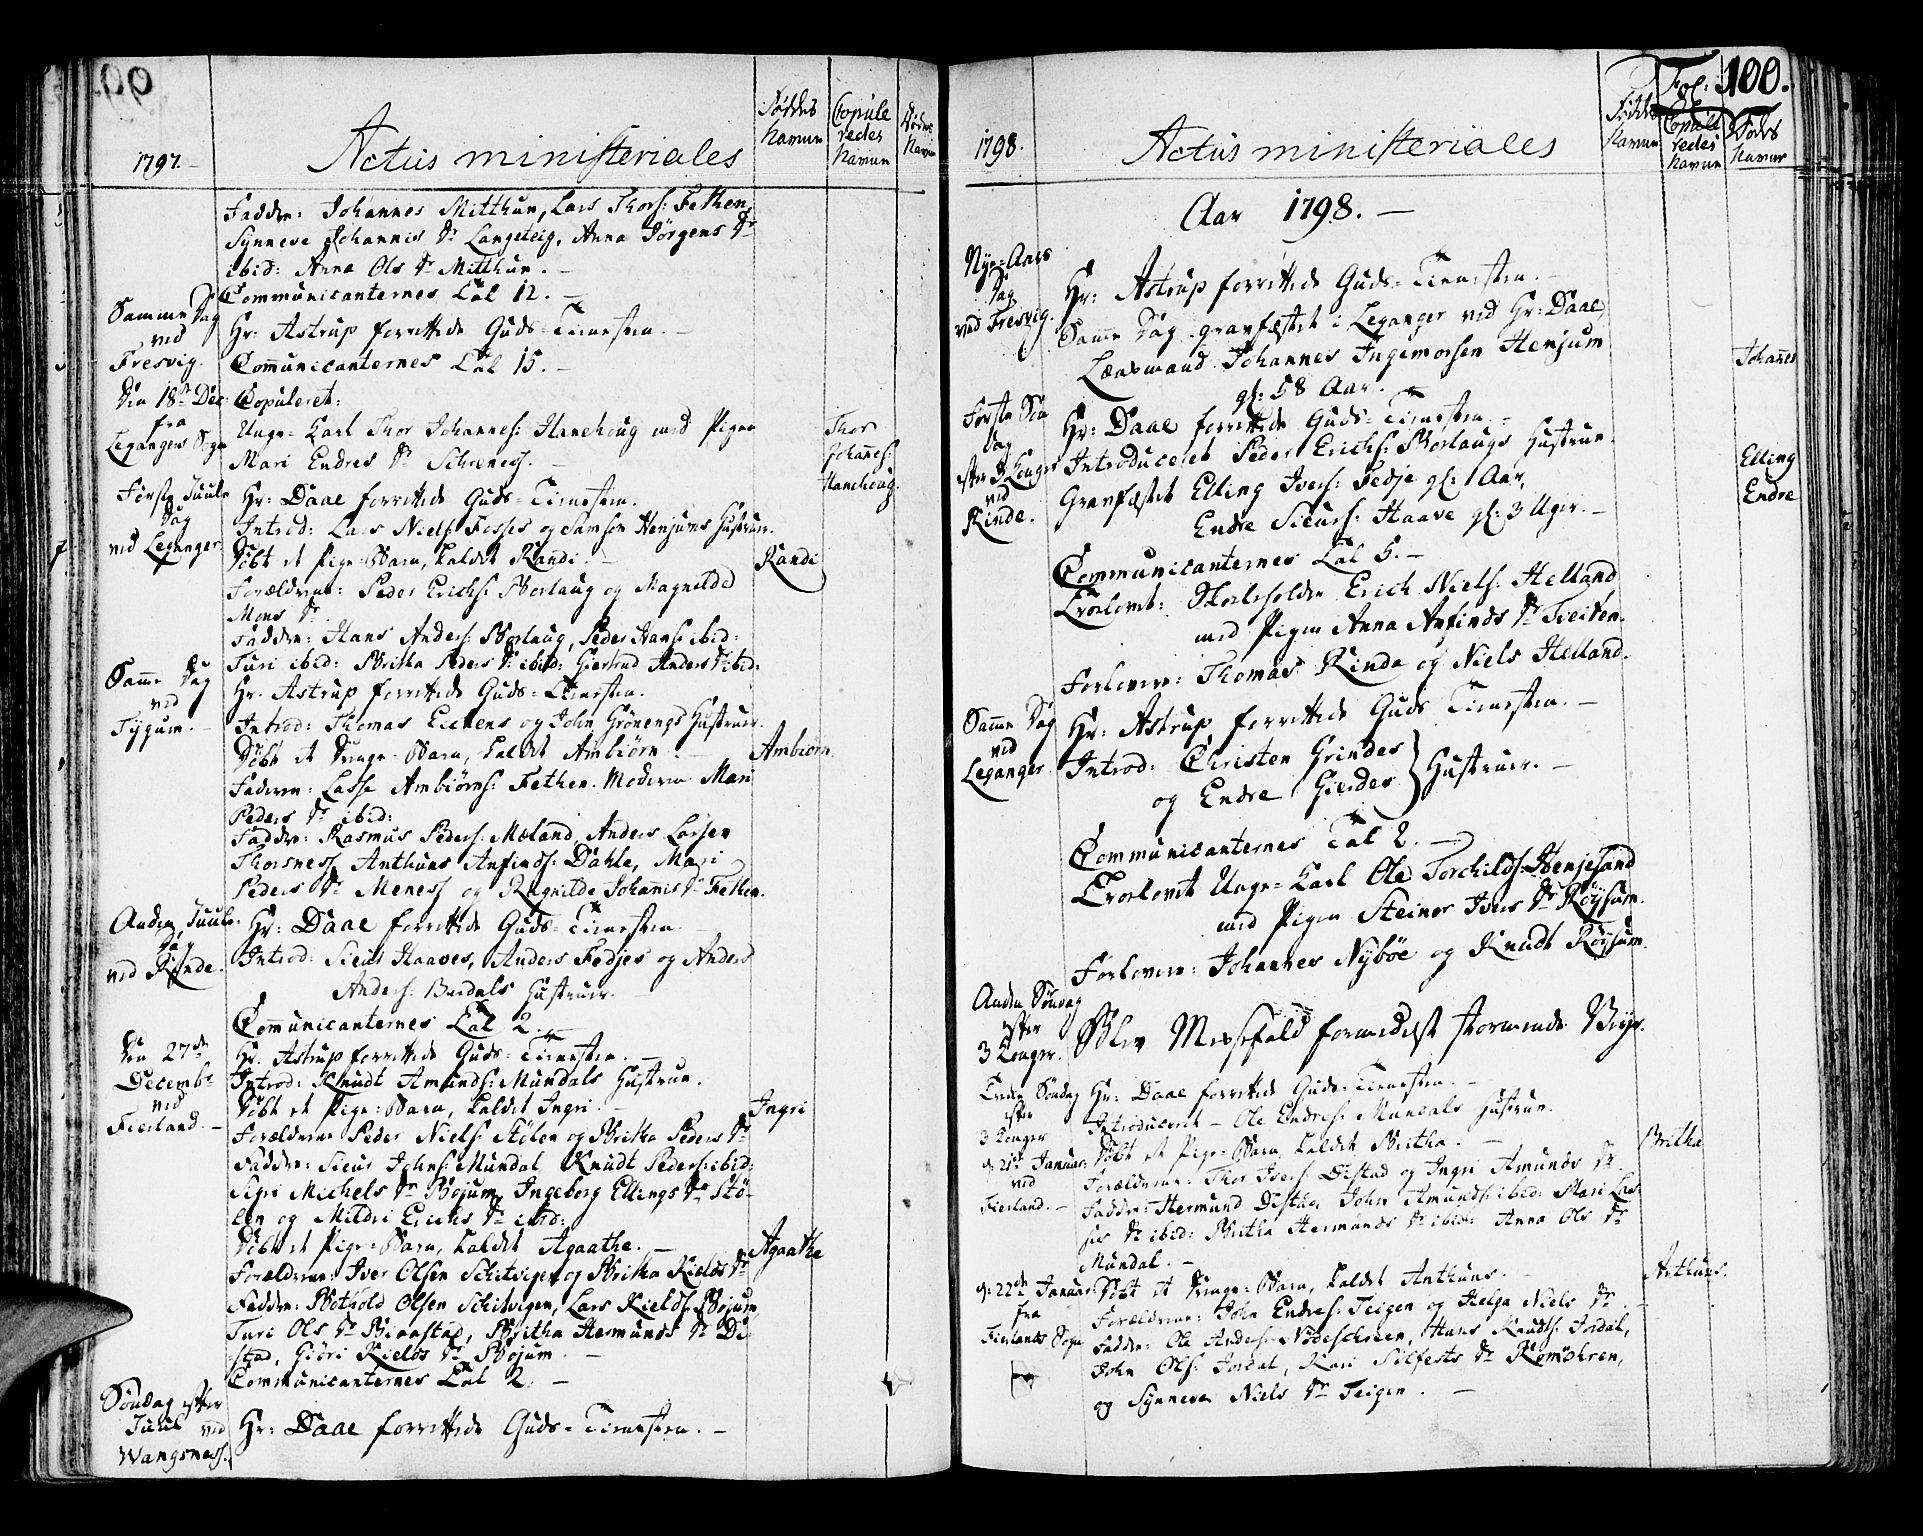 1797.
Actus ministeriales
Fødde Navne
Copulerede Navne
Døde Navne
Faddre: Johannes Mitthun, Lars Thors: Fethen,
Synneve Johannis Dr Langeteig, Anna Jörgens Dr
ibid: Anna Ols Dr Mitthun. —
Communicanternes Tal 12. —
Samme Dag
ved
Fresvig.
Hr: Astrup forrettede Guds-Tienesten. —
Communicanternes Tal 15. —
Den 18de Dec:
fra
Legangers Sogn
Copuleret:
Unge-Karl Thor Johannes: Hanehoug med Pigen
Mari Endres Dr Schreness. —
Thor
Johañes:
Hanehoug.
Første Juule
Dag
ved Leganger
Hr: Daae forrettede Guds-Tienesten.
Introd: Lars Niels: Fosses og Samson Henjums Hustruer.
Döbt et Pige-Barn, kaldet Randi. —
Randi
Forældrene: Peder Erichs: Borlaug og Magnilde
Mons Dr
Faddre: Hans Anders: Borlaug, Peder Hans: ibid:
Turi ibid: Britha Peders Dr ibid: Giertrud Anders Dr ibid:
Samme Dag
ved
Tygum. —
Hr: Astrup forrettede Guds-Tienesten.
Introd: Thomas Eitrens og John Grönengs Hustruer.
Döbt et Drenge-Barn, kaldet Ambiörn. —
Ambiörn.
Faderen: Lasse Ambiörns: Fethen. Moderen Mari
Peders Dr ibid:
Faddre: Rasmus Peders: Mæland, Anders Larsen
Thorsness, Anthuns Anfinds: Dahle, Mari
Peders Dr Meness og Ragnilde Johannis Dr Fethen.
Anden Juule-
Dag
ved Rinde.
Hr: Daae forrettede Guds-Tienesten. —
Introd: Sieur Haaves, Anders Fedjes og Anders
Anders: Basdals Hustruer. —
Communicanternes Tal 2. —
Den 27de
Decembr
ved
Fierland. —
Hr: Astrup forrettede Guds-Tienesten. —
Introd: Knudt Amunds: Mundals Hustrue.
Döbt et Pige-Barn, kaldet Ingri. —
Ingri
Forældrene Peder Niels: Stölen og Britha Peders Dr
Faddre: Sieur Johns: Mundal, Knudt Peders: ibid:
Sigri Michels Dr Bojum, Ingeborg Ellings Dr Stö-
len og Mildri Erichs Dr ibid:
Döbt et Pige-Barn, kaldet Agaathe. —
Agaathe
Forældrene: Iver Olsen Schitvigen og Britha Kields Dr
Faddre: Bothold Olsen Schitvigen, Lars Kields: Bojum
Turi Ols Dr Biaastad, Britha Hermunds Dr Di-
stad, Giöri Kields Dr Bojum. —
Communicanternes Tal 2. —
Söndag efter
Juul ved
Wangsness.
Hr: Daae forrettede Guds-Tienesten. —
1798.
Actus ministeriales
Fødde Navne
Copulerede Navne
Døde Navne
Fol: 100.
Aar 1798. —
Nye-Aars
Dag
ved Fresvig.
Hr: Astrup forrettede Guds-Tienesten. —
Samme Dag gravfæstet i Leganger ved Hr: Daae,
Lænsmand Johannes Ingemorsen Henjum
gl: 58 Aar. —
Johañes
Første Sön
dag
efter 3 Konger
ved
Rinde.
Hr: Daae forrettede Guds-Tienesten. —
Introduceret Peder Erichs: Borlaugs Hustrue.
Gravfæstet Elling Ivers: Fedje gl: 1 Aar,
Elling
Endre Sieurs: Haave gl: 3 Uger. —
Endre
Communicanternes Tal 5. —
Trolovet: Skoleholder Erich Niels: Helland
med Pigen Anna Anfinds Dr Tieiten.
Forlovere: Thomas Rinde og Niels Helland.
Samme Dag
ved
Leganger.
Hr: Astrup forrettede Guds Tienesten. —
Introd: Christen Grindes
og Endre Gierdes } Hustruer. —
Communicanternes Tal 2. —
Trolovet Unge-Karl Ole Torchilds: Henjesand
med Pigen Steinor Ivers Dr Röysum.
Forlovere: Johannes Nyböe og Knudt Röysum.
Anden Söndag
efter
3 Konger.
Blev Messefald formedelst stormende Veyr.
Tredie Söndag
efter
3 Konger
d: 21de Januar:
ved
Fierland. —
Hr: Daae forrettede Guds-Tienesten. —
Introduceret — Ole Endres: Mundals Hustrue.
Döbt et Pige-Barn, kaldet Britha. —
Britha
Forældrene: Thor Ivers: Distad og Ingri Amunds Dr
Faddre: Hermund Distad, John Amunds: ibid: Mari Las-
ses Dr ibid: Britha Hermunds Dr ibid: Anna Ols Dr
Mundal. —
d: 22de Januar:
fra
Fierlands Sogn
Döbt et Drenge-Barn, kaldet Anthuns. —
Anthuns.
Forældrene: John Endres: Teigen og Helga Niels Dr
Faddre: Ole Anders: Nödeschreen, Hans Knudts: Jordal,
John Ols: Jordal, Kari Silfests Dr Romöhren,
og Synneve Niels Dr Teigen. —